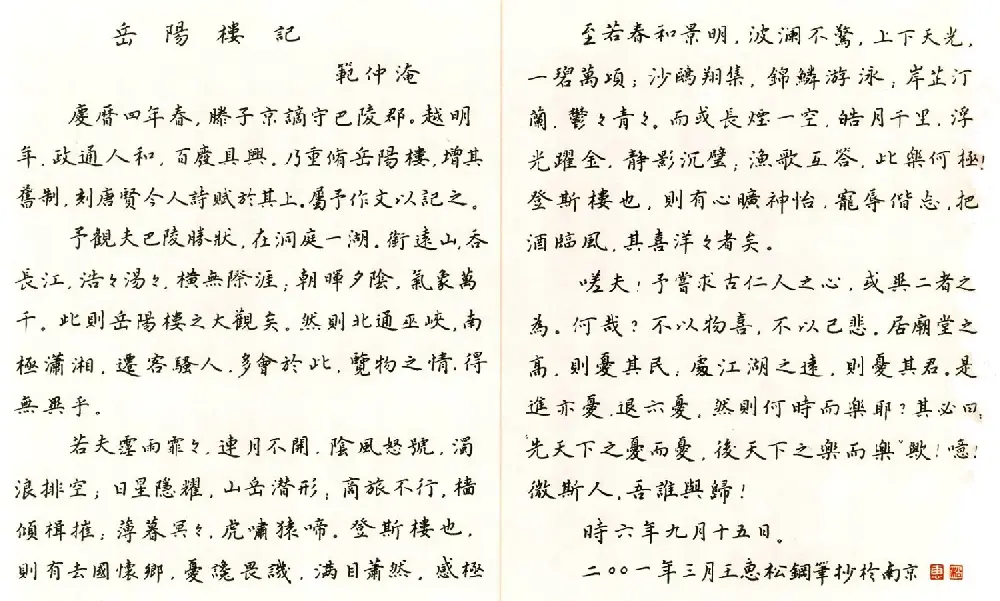 岳陽樓記
範仲淹
慶曆四年春，滕子京謫守巴陵郡。越明
年，政通人和，百廢具興。乃重脩岳陽樓，增其
舊制，刻唐賢今人詩賦於其上。屬予作文以記之。
予觀夫巴陵勝狀，在洞庭一湖。銜遠山，吞
長江，浩々湯々，橫無際涯；朝暉夕陰，氣象萬
千。此則岳陽樓之大觀矣。然則北通巫峽，南
極瀟湘，遷客騷人，多會於此，覽物之情，得
無異乎。
若夫霪雨霏々，連月不開，陰風怒號，濁
浪排空；日星隱耀，山岳潛形；商旅不行，檣
傾楫摧；薄暮冥々，虎嘯猿啼。登斯樓也，
則有去國懷鄉，憂讒畏譏，滿目蕭然，感極
至若春和景明，波瀾不驚，上下天光，
一碧萬頃；沙鷗翔集，錦鱗游泳；岸芷汀
蘭，鬱々青々。而或長煙一空，皓月千里，浮
光躍金，靜影沉璧；漁歌互答，此樂何極！
登斯樓也，則有心曠神怡，寵辱偕忘，把
酒臨風，其喜洋々者矣。
嗟夫！予嘗求古仁人之心，或異二者之
為。何哉？不以物喜，不以己悲。居廟堂之
高，則憂其民；處江湖之遠，則憂其君。是
進亦憂，退亦憂，然則何時而樂耶？其必曰：
“先天下之憂而憂，後天下之樂而樂”歟！噫！
微斯人，吾誰與歸！
時六年九月十五日。
二〇〇一年三月王惠松鋼筆抄於南京